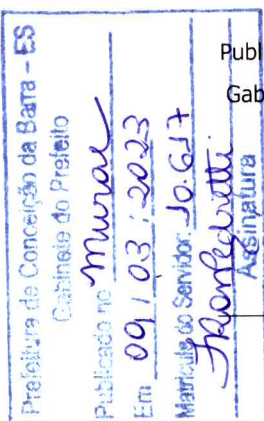 Prefeitura de Conceição da Barra - ES
Gabinete do Prefeito
Publicado no Mural
Em 09 / 03 / 2023
Matrícula do Servidor: 10.617
Assinatura
Publ
Gab